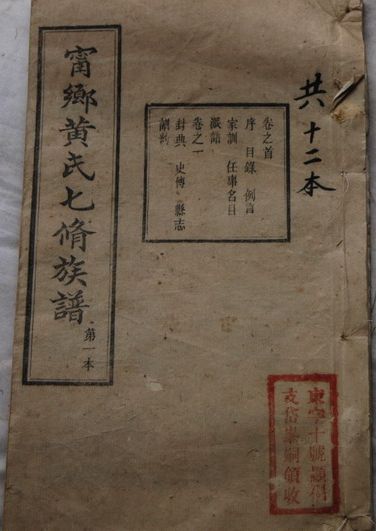 共十二本
卷之首
序 目錄 例言
家訓 任事名目
派語
卷之一
封典 史傳 縣志
甯鄉黃氏七脩族譜
第一本
東字十號
支岱 嗣領收